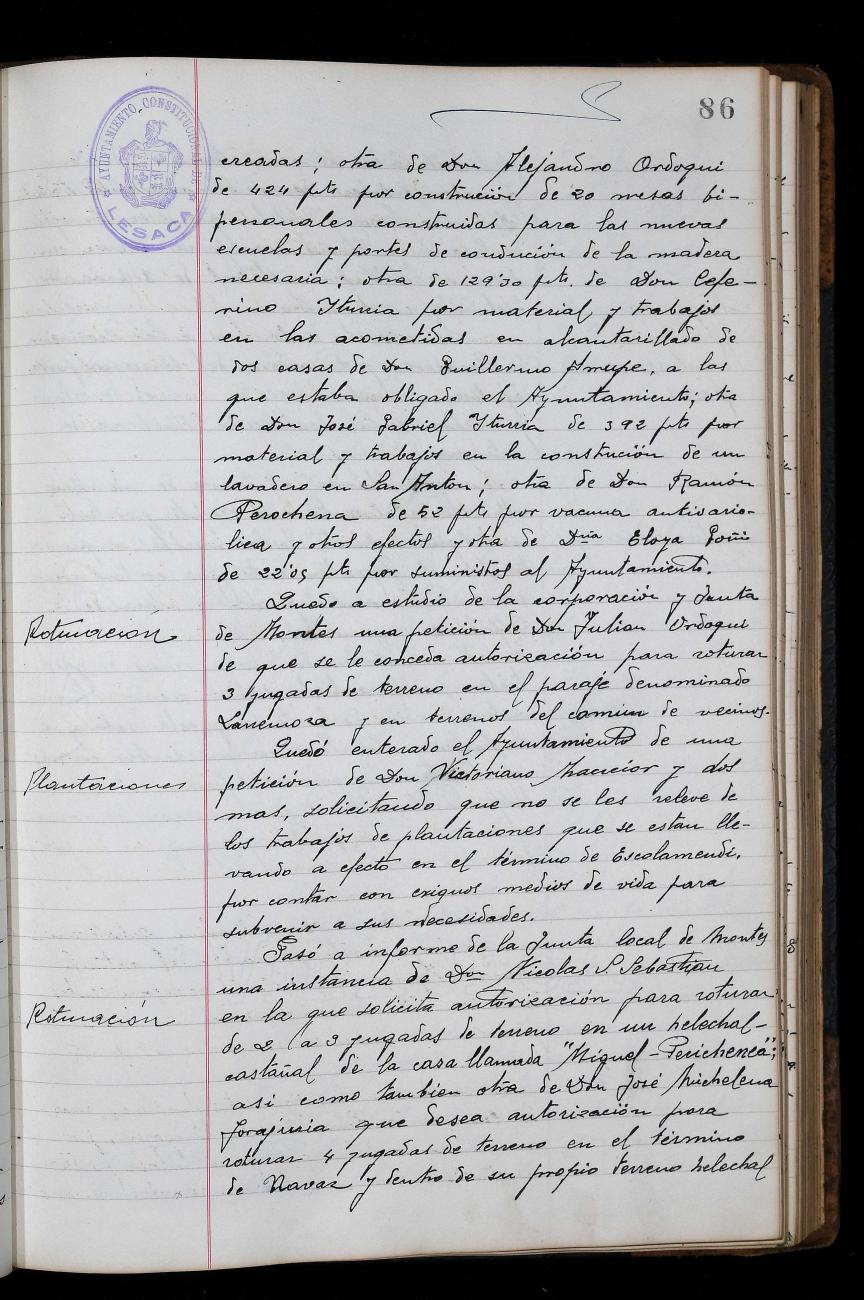 86
AYUNTAMIENTO CONSTITUCIONAL DE
LESACA
creadas; otra de Don Alejandro Ordoqui
de 424 pts por construción de 20 mesas bi-
personales construidas para las nuevas
escuelas y portes de condución de la madera
necesaria; otra de 129'30 pts. de Don Cefe-
rino Yturria por material y trabajos
en las acometidas en alcantarillado de
dos casas de Don Guillermo, a las
que estaba obligado el Ayuntamiento; otra
de Don José Gabriel Yturria de 392 pts por
material y trabajos en la constución de un
lavadero en San Anton; otra de Don Ramón
Perochena de 52 pts por vacuna antivario-
lica y otros efectos y otra de Dña Eloya Goñi
de 22'05 pts por suministos al Ayuntamiento.
Quedo a estudio de la corporación y Junta
Roturación
de Montes una petición de Don Julian Ordoqui
de que se le conceda autorización para roturar
3 yugadas de terreno en el paraje denominado
Larremoza y en terrenos del comun de vecinos.
Quedó enterado el Ayuntamiento de una
Plantaciones
petición de Don Victoriano y dos
mas, solicitando que no se les releve de
los trabajos de plantaciones que se estan lle-
vando a efecto en el término de Escolamendi,
por contar con exiguos medios de vida para
subvenir a sus necesidades.
Pasó a informe de la Junta local de Montes
una instancia de Don Nicolas S. Sebastian
Roturación
en la que solicita autorización para roturar
de 2 a 3 yugadas de terreno en un helechal-
castañal de la casa llamada "Miguel-Perichenea";
asi como tambien otra de Don José Michelena
que desea autorización para
roturar 4 yugadas de terreno en el término
de Navaz y dentro de su propio terreno helechal